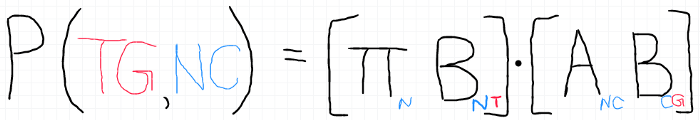 P(TG,NC) = [π_N B_NT]·[A_NC B_CG]